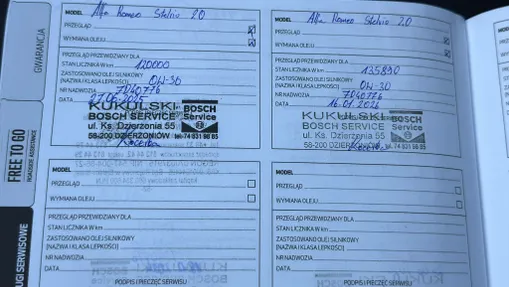 GWARANCJA
FREE TO GO
ROADSIDE ASSISTANCE
UGI SERWISOWE
MODEL Alfa Romeo Stelvio 2.0
PRZEGLĄD
WYMIANA OLEJU
PRZEGLĄD PRZEWIDZIANY DLA
STAN LICZNIKA W km 120000
ZASTOSOWANO OLEJ SILNIKOWY
(NAZWA I KLASA LEPKOŚCI) 0W-30
NR NADWOZIA 7D40776
DATA
KUKULSKI
BOSCH SERVICE
ul. Ks. Dzierżonia 55
58-200 DZIERŻONIÓW
BOSCH
Service
tel. 74 831 98 85
MODEL Alfa Romeo Stelvio 2.0
PRZEGLĄD
WYMIANA OLEJU
PRZEGLĄD PRZEWIDZIANY DLA
STAN LICZNIKA W km 135890
ZASTOSOWANO OLEJ SILNIKOWY
(NAZWA I KLASA LEPKOŚCI) 0W-30
NR NADWOZIA 7D40776
DATA 16.01.2026
KUKULSKI
BOSCH SERVICE
ul. Ks. Dzierżonia 55
58-200 DZIERŻONIÓW
BOSCH
Service
tel. 74 831 98 85
MODEL
PRZEGLĄD
WYMIANA OLEJU
PRZEGLĄD PRZEWIDZIANY DLA
STAN LICZNIKA W km
ZASTOSOWANO OLEJ SILNIKOWY
(NAZWA I KLASA LEPKOŚCI)
NR NADWOZIA
DATA
PODPIS I PIECZĘĆ SERWISU
MODEL
PRZEGLĄD
WYMIANA OLEJU
PRZEGLĄD PRZEWIDZIANY DLA
STAN LICZNIKA W km
ZASTOSOWANO OLEJ SILNIKOWY
(NAZWA I KLASA LEPKOŚCI)
NR NADWOZIA
DATA
PODPIS I PIECZĘĆ SERWISU